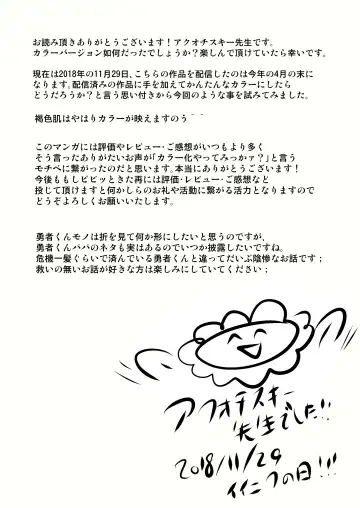 お読み頂きありがとうございます！アクオチスキー先生です。
カラーバージョン如何だったでしょうか？楽しんで頂けていたら幸いです。
現在は2018年の11月29日、こちらの作品を配信したのは今年の4月の末に
なります。配信済みの作品に手を加えてかんたんなカラーにしたら
どうだろうか？と言う思い付きから今回のような事を試してみました。
褐色肌はやはりカラーが映えますのう＾＾
このマンガには評価やレビュー・ご感想がいつもより多く
そう言ったありがたいお声が「カラー化やってみっかァ？」と言う
モチベに繋がったのだと思います。本当にありがとうございます！
今後ももしビビッときた再には評価・レビュー・ご感想など
投じて頂けますと何かしらのお礼や活動に繋がる活力となりますので
どうぞよろしくお願いいたします。
勇者くんモノは折を見て何か形にしたいと思うのですが、
勇者くんパパのネタも実はあるのでいつか披露したいですね。
危機一髪ぐらいで済んでいる勇者くんと違ってだいぶ陰惨なお話です；
救いの無いお話が好きな方は楽しみにしていてください；
アクオチスキー
先生でした!!
2018/11/29
イイニクの日!!!